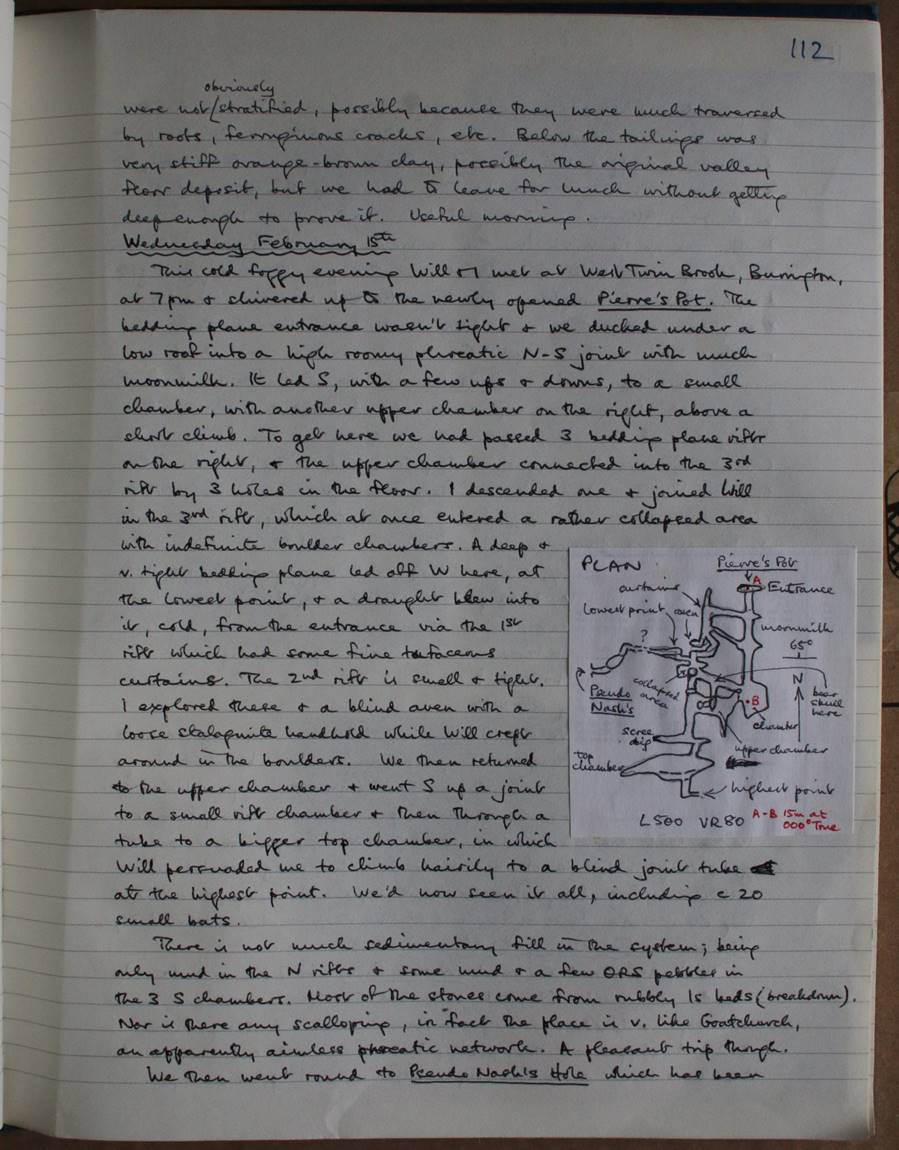 112
obviously
were not/stratified, possibly because they were much traversed
by roots, ferruginous cracks, etc. Below the tailings was
very stiff orange-brown clay, possibly the original valley
floor deposit, but we had to leave for lunch without getting
deep enough to prove it. Useful morning.
Wednesday February 15th
This cold foggy evening Will & I met at West Twin Brook, Burrington,
at 7pm & shivered up to the newly opened Pierre's Pot. The
bedding plane entrance wasn't tight & we ducked under a
low roof into a high roomy phreatic N-S joint with much
moonmilk. It led S, with a few ups & downs, to a small
chamber, with another upper chamber on the right, above a
short climb. To get here we had passed 3 bedding plane rifts
on the right, & the upper chamber connected into the 3rd
rift by 3 holes in the floor. I descended one & joined Will
in the 3rd rift, which at once entered a rather collapsed area
with indefinite boulder chambers. A deep &
v. tight bedding plane led off W here, at
the lowest point, & a draught blew into
it, cold, from the entrance via the 1st
rift which had some fine tufaceous
curtains. The 2nd rift is small & tight.
I explored these & a blind aven with a
loose stalagmite handhold while Will crept
around in the boulders. We then returned
to the upper chamber & went S up a joint
to a small rift chamber & then through a
tube to a bigger top chamber, in which
Will persuaded me to climb hairily to a blind joint tube
at the highest point. We'd now seen it all, including c 20
small bats.
There is not much sedimentary fill in the system; being
only mud in the N rifts & some mud & a few ORS pebbles in
the 3 S chambers. Most of the stones come from rubbly ls beds (breakdown).
Nor is there any scalloping, in fact the place is v. like Goatchurch,
an apparently aimless phreatic network. A pleasant trip though.
We then went round to Pseudo Nash's Hole which has been
PLAN
Pierre's Pot
A
Entrance
curtains
lowest point
aven
moonmilk
65°
?
N
Pseudo
Nash's
collapsed
area
bear
skull
here
B
chamber
scree
dip
upper chamber
top
chamber
highest point
L500 VR80
A-B 15m at
000° True